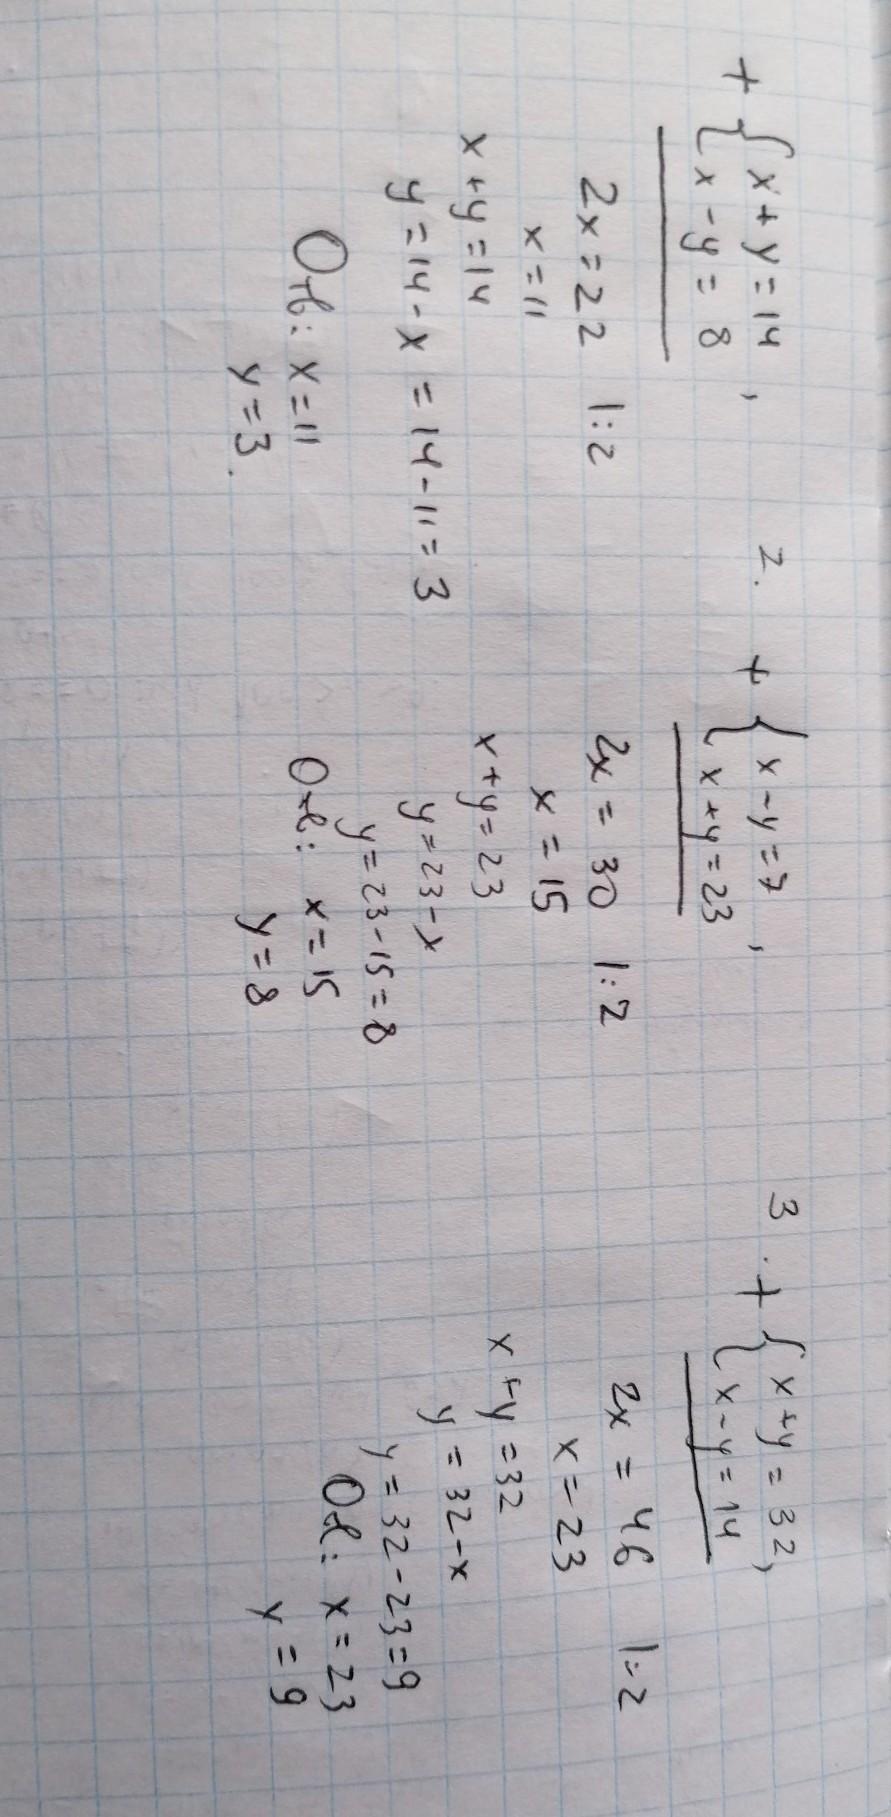 + { x + y = 14 ,
x - y = 8
2x = 22 |:2
x = 11
x + y = 14
y = 14 - x = 14 - 11 = 3
Отв: x = 11
y = 3.
2. + { x - y = 7 ,
x + y = 23
2x = 30 |:2
x = 15
x + y = 23
y = 23 - x
y = 23 - 15 = 8
Отв: x = 15
y = 8
3. + { x + y = 32,
x - y = 14
2x = 46 |:2
x = 23
x + y = 32
y = 32 - x
y = 32 - 23 = 9
Отв: x = 23
y = 9